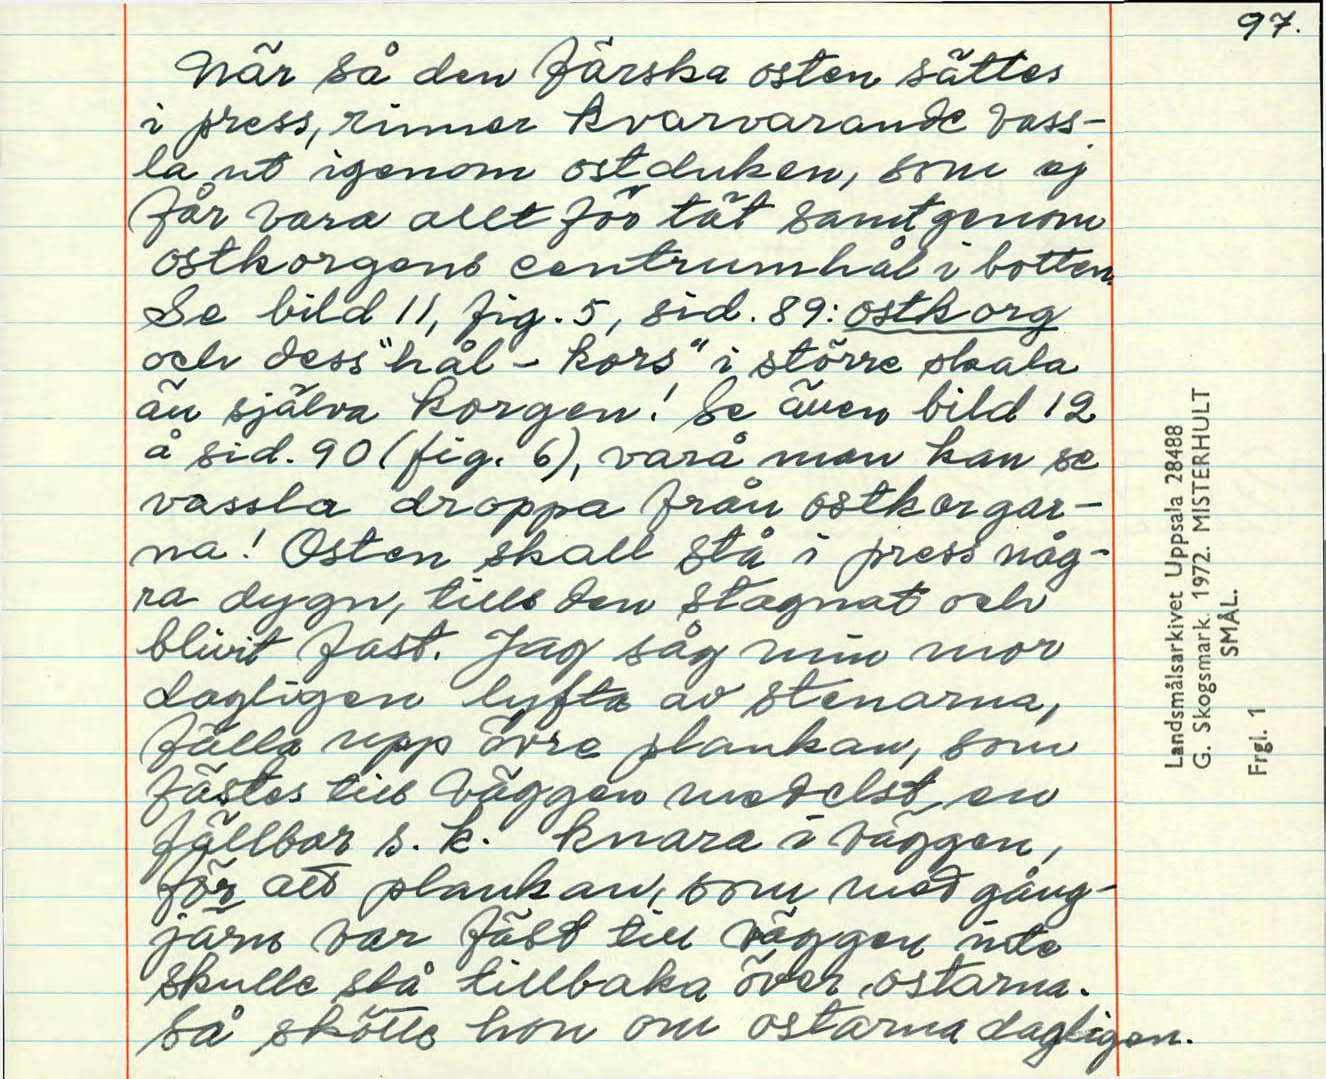 97.
När så den färska osten sättes
i press, rinner kvarvarande vass-
la ut igenom ostduken, som ej
får vara allt för tät samt genom
ostkorgens centrumhål i botten.
Se bild 11, fig. 5, sid. 89: ostkorg
och dess "hål - kors" i större skala
än själva korgen! Se även bild 12
å sid. 90 (fig. 6), varå man kan se
vassla droppa från ostkorgar-
na! Osten skall stå i press någ-
ra dygn, tills den stagnat och
blivit fast. Jag såg min mor
dagligen lyfta av stenarna,
fälla upp övre plankan, som
fästes till väggen medelst en
fällbar s. k. knara i väggen,
för att plankan, som med gång-
järn var fäst till väggen inte
skulle slå tillbaka över ostarna.
Så skötte hon om ostarna dagligen.
Landsmålsarkivet Uppsala 28488
G. Skogsmark. 1972. MISTERHULT
SMÅL.
Frgl. 1